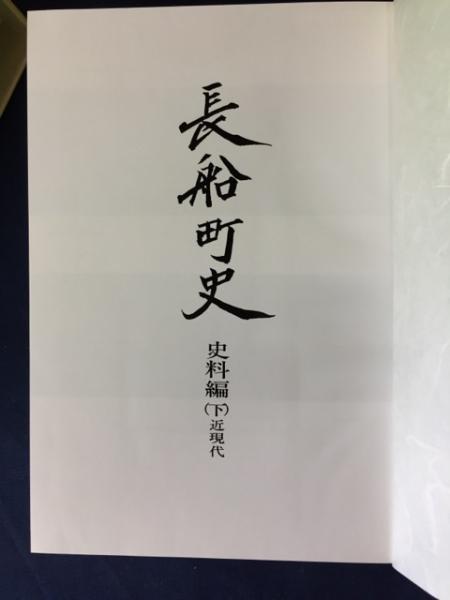 長船町史
史料編(下)近現代